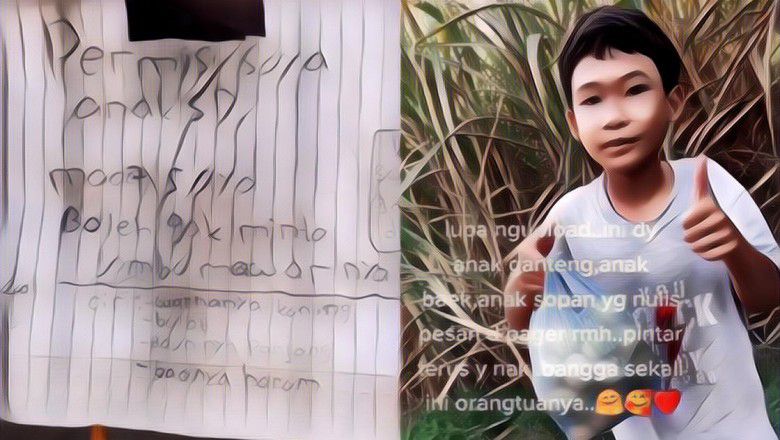 Permisi saya
anak SD
maaf saya
Boleh gak minta
nya
ciri :- warnanya kuning
- panjang
- baunya harum
lupa ngupload..ini dy
anak ganteng,anak
baek,anak sopan yg nulis
pesan d pager rmh..pintar
terus y nak bangga sekali
ini orangtuanya..🤗🥰❤️